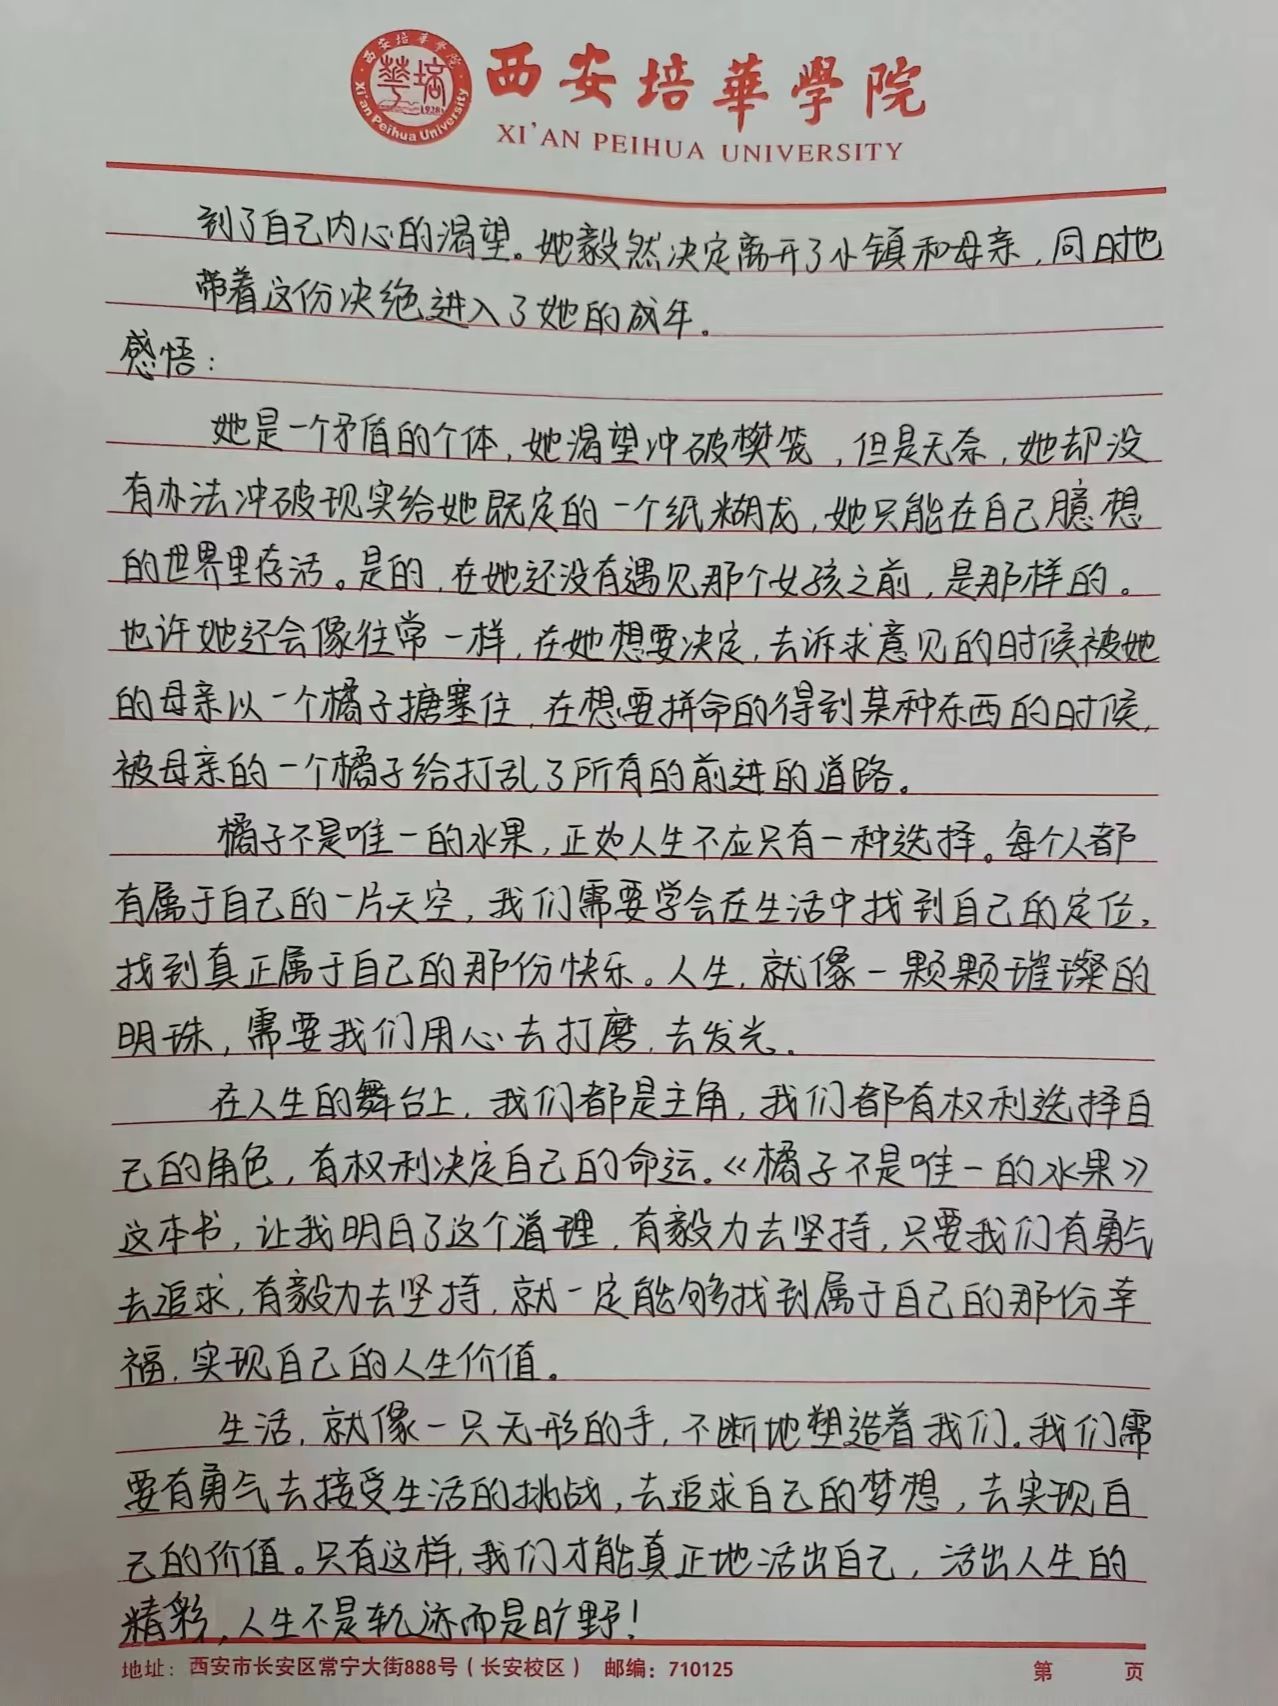 西安培華學院
XI'AN PEIHUA UNIVERSITY
西安培華學院
華培
1928
Xi'an Peihua University
到了自己内心的渴望。她毅然决定离开了小镇和母亲，同时也
带着这份决绝进入了她的成年。
感悟：
她是一个矛盾的个体，她渴望冲破樊笼，但是无奈，她却没
有办法冲破现实给她既定的一个纸糊龙，她只能在自己臆想
的世界里存活。是的，在她还没有遇见那个女孩之前，是那样的。
也许她还会像往常一样，在她想要决定，去诉求意见的时候被她
的母亲以一个橘子搪塞住，在想要拼命的得到某种东西的时候，
被母亲的一个橘子给打乱了所有的前进的道路。
橘子不是唯一的水果，正如人生不应只有一种选择。每个人都
有属于自己的一片天空，我们需要学会在生活中找到自己的定位，
找到真正属于自己的那份快乐。人生，就像一颗颗璀璨的
明珠，需要我们用心去打磨，去发光。
在人生的舞台上，我们都是主角，我们都有权利选择自
己的角色，有权利决定自己的命运。《橘子不是唯一的水果》
这本书，让我明白了这个道理，有毅力去坚持，只要我们有勇气
去追求，有毅力去坚持，就一定能够找到属于自己的那份幸
福，实现自己的人生价值。
生活，就像一只无形的手，不断地塑造着我们。我们需
要有勇气去接受生活的挑战，去追求自己的梦想，去实现自
己的价值。只有这样，我们才能真正地活出自己，活出人生的
精彩，人生不是轨迹而是旷野！
地址：西安市长安区常宁大街888号（长安校区） 邮编：710125 第 页